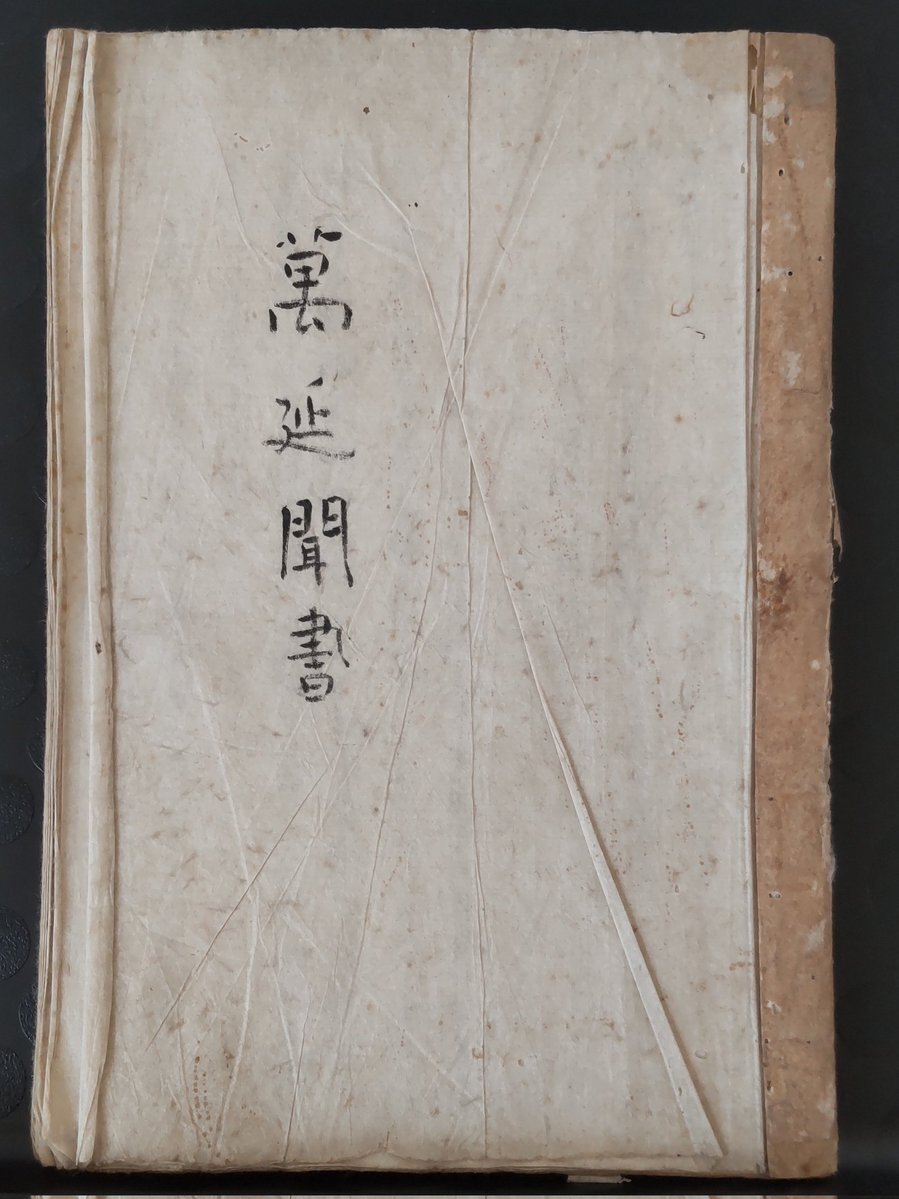 萬延聞書